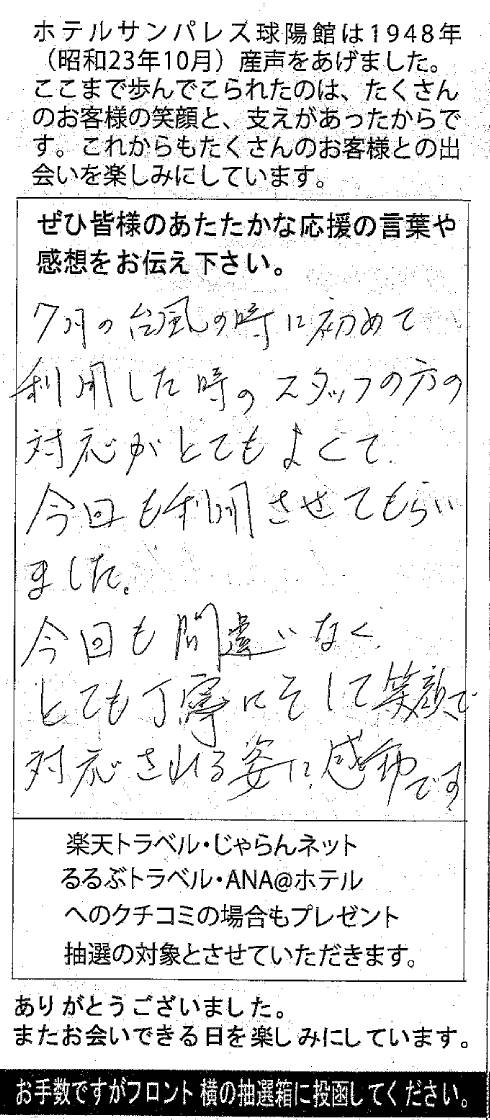 ホテルサンパレス球陽館は1948年
（昭和23年10月）産声をあげました。
ここまで歩んでこられたのは、たくさん
のお客様の笑顔と、支えがあったからで
す。これからもたくさんのお客様との出
会いを楽しみにしています。
ぜひ皆様のあたたかな応援の言葉や
感想をお伝え下さい。
7月の台風の時に初めて
利用した時のスタッフの方の
対応がとてもよくて、
今回も利用させてもらい
ました。
今回も間違いなく、
とても丁寧にそして笑顔で
対応される姿に、感動です
楽天トラベル・じゃらんネット
るるぶトラベル・ANA@ホテル
へのクチコミの場合もプレゼント
抽選の対象とさせていただきます。
ありがとうございました。
またお会いできる日を楽しみにしています。
お手数ですがフロント横の抽選箱に投函してください。